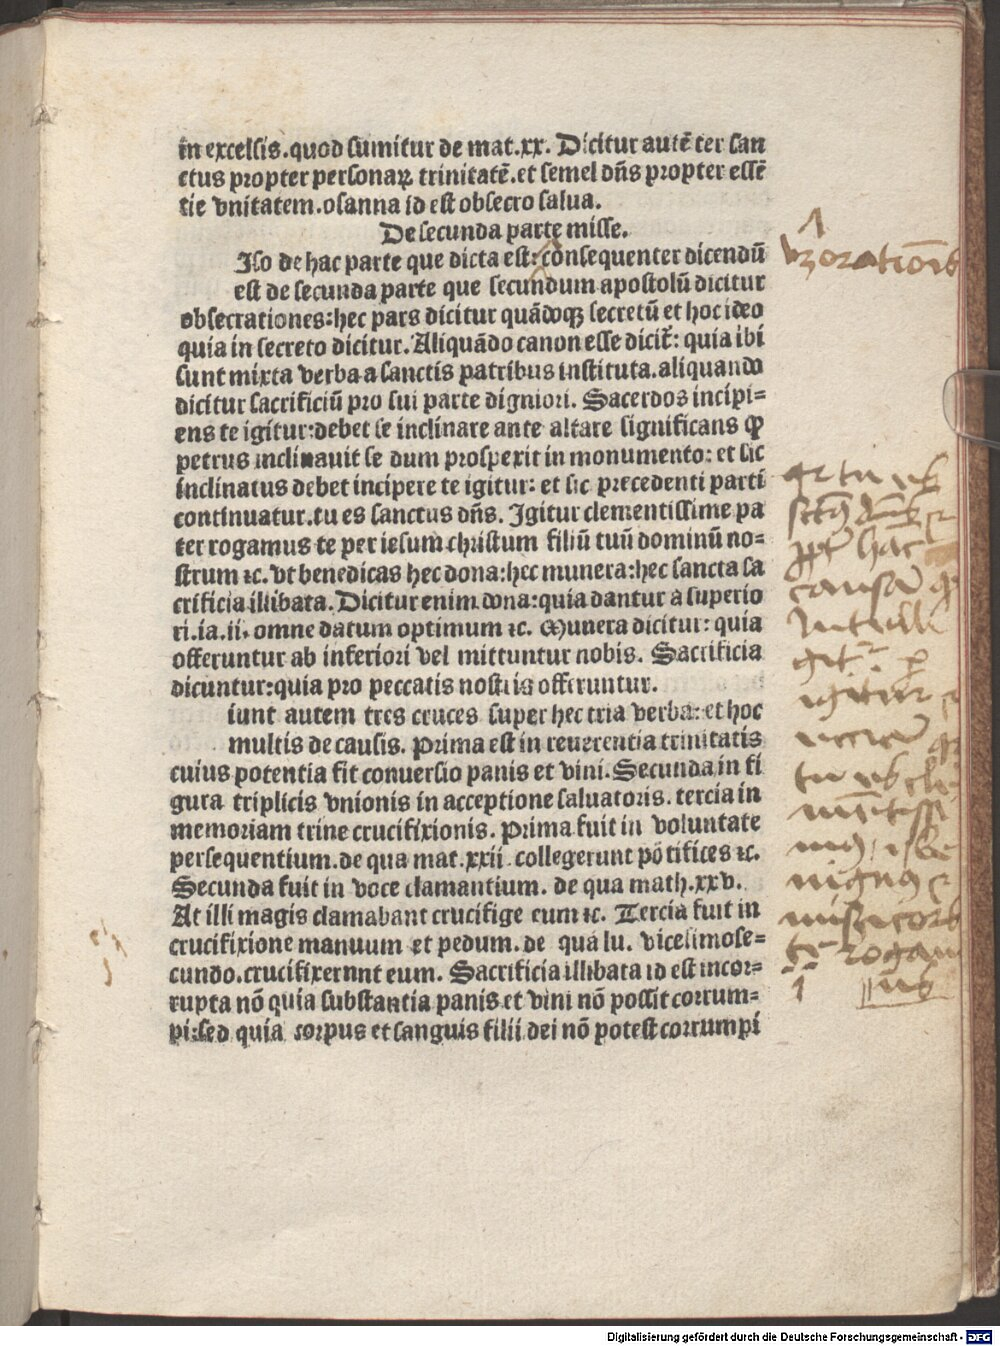 in excelsis.quod sumitur de mat.xx. Dicitur autē ter san
ctus propter personaꝝ trinitatē.et semel dn̄s propter essē
tie vnitatem.osanna id est obsecro salua.
De secunda parte misse.
Iso de hac parte que dicta est:consequenter dicendū
est de secunda parte que secundum apostolū dicitur
obsecrationes:hec pars dicitur quādoqꝫ secretū et hoc ideo
quia in secreto dicitur.Aliquādo canon esse dicit̄: quia ibi
sunt mixta verba a sanctis patribus instituta.aliquando
dicitur sacrificiū pro sui parte digniori. Sacerdos incipi=
ens te igitur:debet se inclinare ante altare significans ꝙ
petrus inclinauit se dum prospexit in monumento: et sic
inclinatus debet incipere te igitur: et sic precedenti parti
continuatur.tu es sanctus dn̄s. Igitur clementissime pa
ter rogamus te per iesum christum filiū tuū dominū no=
strum ⁊c. vt benedicas hec dona:hec munera:hec sancta sa
crificia illibata.Dicitur enim dona:quia dantur a superio
ri.ia.ii. omne datum optimum ⁊c. Munera dicitur: quia
offeruntur ab inferiori vel mittuntur nobis. Sacrificia
dicuntur:quia pro peccatis nostris offeruntur.
iunt autem tres cruces super hec tria verba: et hoc
multis de causis. Prima est in reuerentia trinitatis
cuius potentia fit conuersio panis et vini.Secunda in fi
gura triplicis vnionis in acceptione saluatoris. tercia in
memoriam trine crucifixionis. Prima fuit in voluntate
persequentium.de qua mat.xxii. collegerunt pōtifices ⁊c.
Secunda fuit in voce clamantium. de qua math.xxv.
At illi magis clamabant crucifige eum ⁊c. Tercia fuit in
crucifixione manuum et pedum. de qua lu. vicesimose=
cundo.crucifixernnt eum. Sacrificia illibata id est incor=
rupta nō quia substantia panis et vini nō possit corrum=
pi:sed quia corpus et sanguis filii dei nō potest corrumpi
Digitalisierung gefördert durch die Deutsche Forschungsgemeinschaft - DFG